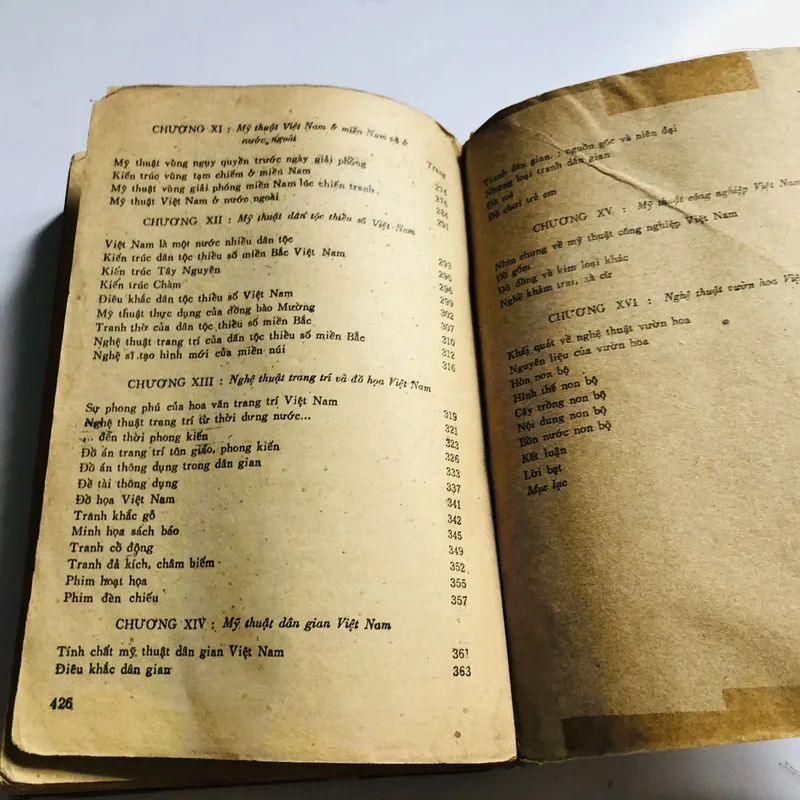 CHƯƠNG XI : Mỹ thuật Việt Nam ở miền Nam và ở
nước ngoài
Trang
Mỹ thuật vùng ngụy quyền trước ngày giải phóng 274
Kiến trúc vùng tạm chiếm ở miền Nam 276
Mỹ thuật vùng giải phóng miền Nam lúc chiến tranh 284
Mỹ thuật Việt Nam ở nước ngoài 291
CHƯƠNG XII : Mỹ thuật dân tộc thiểu số Việt Nam
Việt Nam là một nước nhiều dân tộc 293
Kiến trúc dân tộc thiểu số miền Bắc Việt Nam 295
Kiến trúc Tây Nguyên 296
Kiến trúc Chàm 299
Điêu khắc dân tộc thiểu số Việt Nam 302
Mỹ thuật thực dụng của đồng bào Mường 307
Tranh thờ của dân tộc thiểu số miền Bắc 310
Nghệ thuật trang trí của dân tộc thiểu số miền Bắc 312
Nghệ sĩ tạo hình mới của miền núi 316
CHƯƠNG XIII : Nghệ thuật trang trí và đồ họa Việt Nam
Sự phong phú của hoa văn trang trí Việt Nam 319
Nghệ thuật trang trí từ thời dựng nước... 321
... đến thời phong kiến 323
Đồ án trang trí tôn giáo, phong kiến 326
Đồ án thông dụng trong dân gian 333
Đề tài thông dụng 337
Đồ họa Việt Nam 341
Tranh khắc gỗ 342
Minh họa sách báo 345
Tranh cổ động 349
Tranh đả kích, châm biếm 352
Phim hoạt họa 355
Phim đèn chiếu 357
CHƯƠNG XIV : Mỹ thuật dân gian Việt Nam
Tính chất mỹ thuật dân gian Việt Nam 361
Điêu khắc dân gian 363
426
Tranh dân gian : nguồn gốc và niên đại
Những loại tranh dân gian
Đồ mã
Đồ chơi trẻ em
CHƯƠNG XV : Mỹ thuật công nghiệp Việt Nam
Nhìn chung về mỹ thuật công nghiệp Việt Nam
Đồ gốm
Đồ đồng và kim loại khác
Nghề khảm trai, xà cừ
CHƯƠNG XVI : Nghệ thuật vườn hoa
Khái quát về nghệ thuật vườn hoa
Nguyên liệu của vườn hoa
Hòn non bộ
Hình thể non bộ
Cây trồng non bộ
Nội dung non bộ
Bồn nước non bộ
Kết luận
Lời bạt
Mục lục